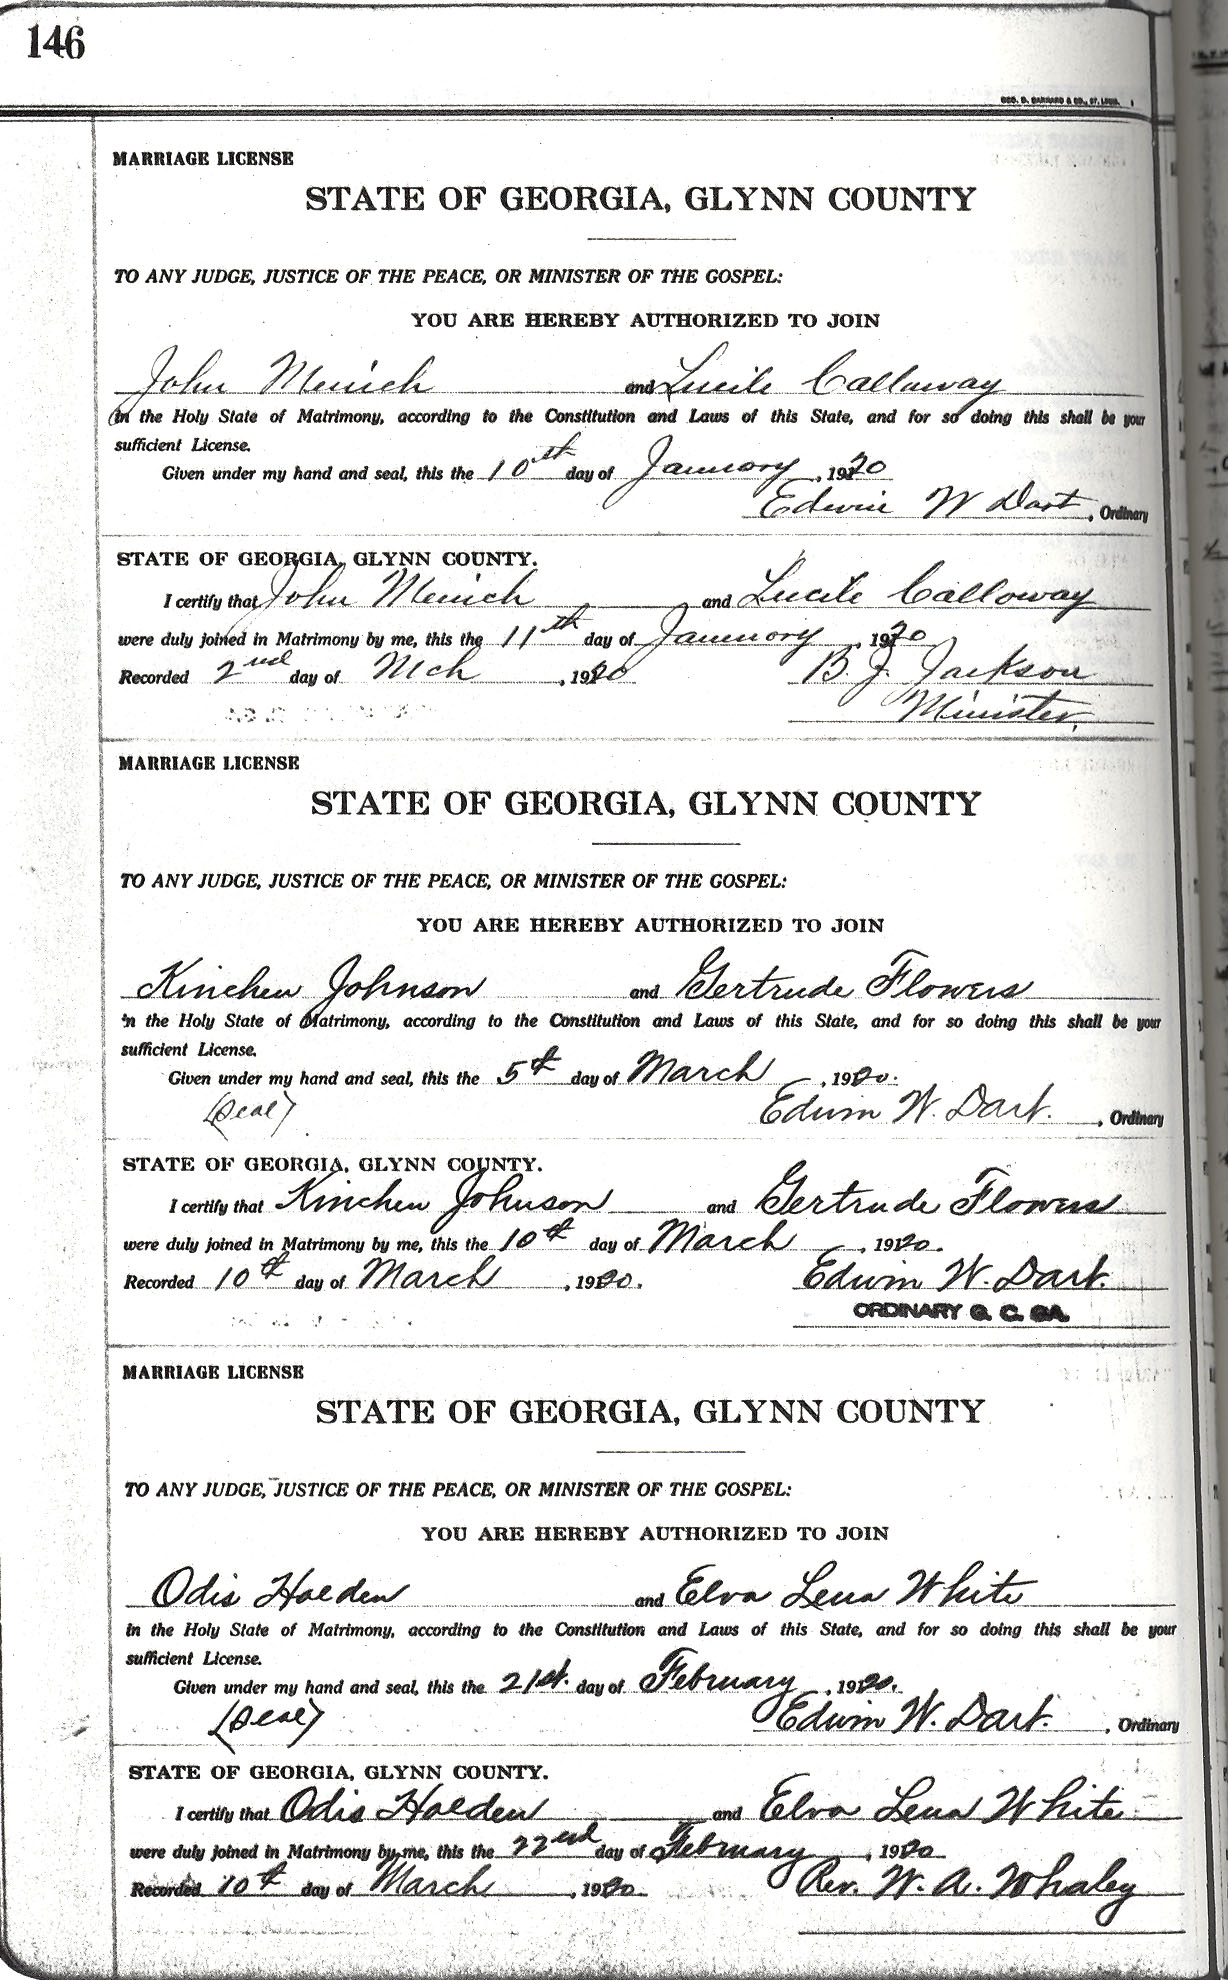 146
GEO. D. BARNARD & CO., ST. LOUIS.
MARRIAGE LICENSE
STATE OF GEORGIA, GLYNN COUNTY
TO ANY JUDGE, JUSTICE OF THE PEACE, OR MINISTER OF THE GOSPEL:
YOU ARE HEREBY AUTHORIZED TO JOIN
John Minich and Lucile Calloway
in the Holy State of Matrimony, according to the Constitution and Laws of this State, and for so doing this shall be your
sufficient License.
Given under my hand and seal, this the 10th day of January, 1920
Edwin W Dart, Ordinary
STATE OF GEORGIA, GLYNN COUNTY.
I certify that John Minich and Lucile Calloway
were duly joined in Matrimony by me, this the 11th day of January, 1920
Recorded 2nd day of Mch, 1920 B. J. Jackson
Minister.
MARRIAGE LICENSE
STATE OF GEORGIA, GLYNN COUNTY
TO ANY JUDGE, JUSTICE OF THE PEACE, OR MINISTER OF THE GOSPEL:
YOU ARE HEREBY AUTHORIZED TO JOIN
Kinchen Johnson and Gertrude Flowers
in the Holy State of Matrimony, according to the Constitution and Laws of this State, and for so doing this shall be your
sufficient License.
Given under my hand and seal, this the 5th day of March, 1920.
(Seal) Edwin W. Dart., Ordinary
STATE OF GEORGIA, GLYNN COUNTY.
I certify that Kinchen Johnson and Gertrude Flowers
were duly joined in Matrimony by me, this the 10th day of March, 1920.
Recorded 10th day of March, 1920. Edwin W. Dart.
ORDINARY G. C. GA.
MARRIAGE LICENSE
STATE OF GEORGIA, GLYNN COUNTY
TO ANY JUDGE, JUSTICE OF THE PEACE, OR MINISTER OF THE GOSPEL:
YOU ARE HEREBY AUTHORIZED TO JOIN
Odis Holden and Elva Lena White
in the Holy State of Matrimony, according to the Constitution and Laws of this State, and for so doing this shall be your
sufficient License.
Given under my hand and seal, this the 21st. day of February, 1920.
(Seal) Edwin W. Dart., Ordinary
STATE OF GEORGIA, GLYNN COUNTY.
I certify that Odis Holden and Elva Lena White
were duly joined in Matrimony by me, this the 22nd day of February, 1920
Recorded 10th day of March, 1920. Rev. W. A. Whaley